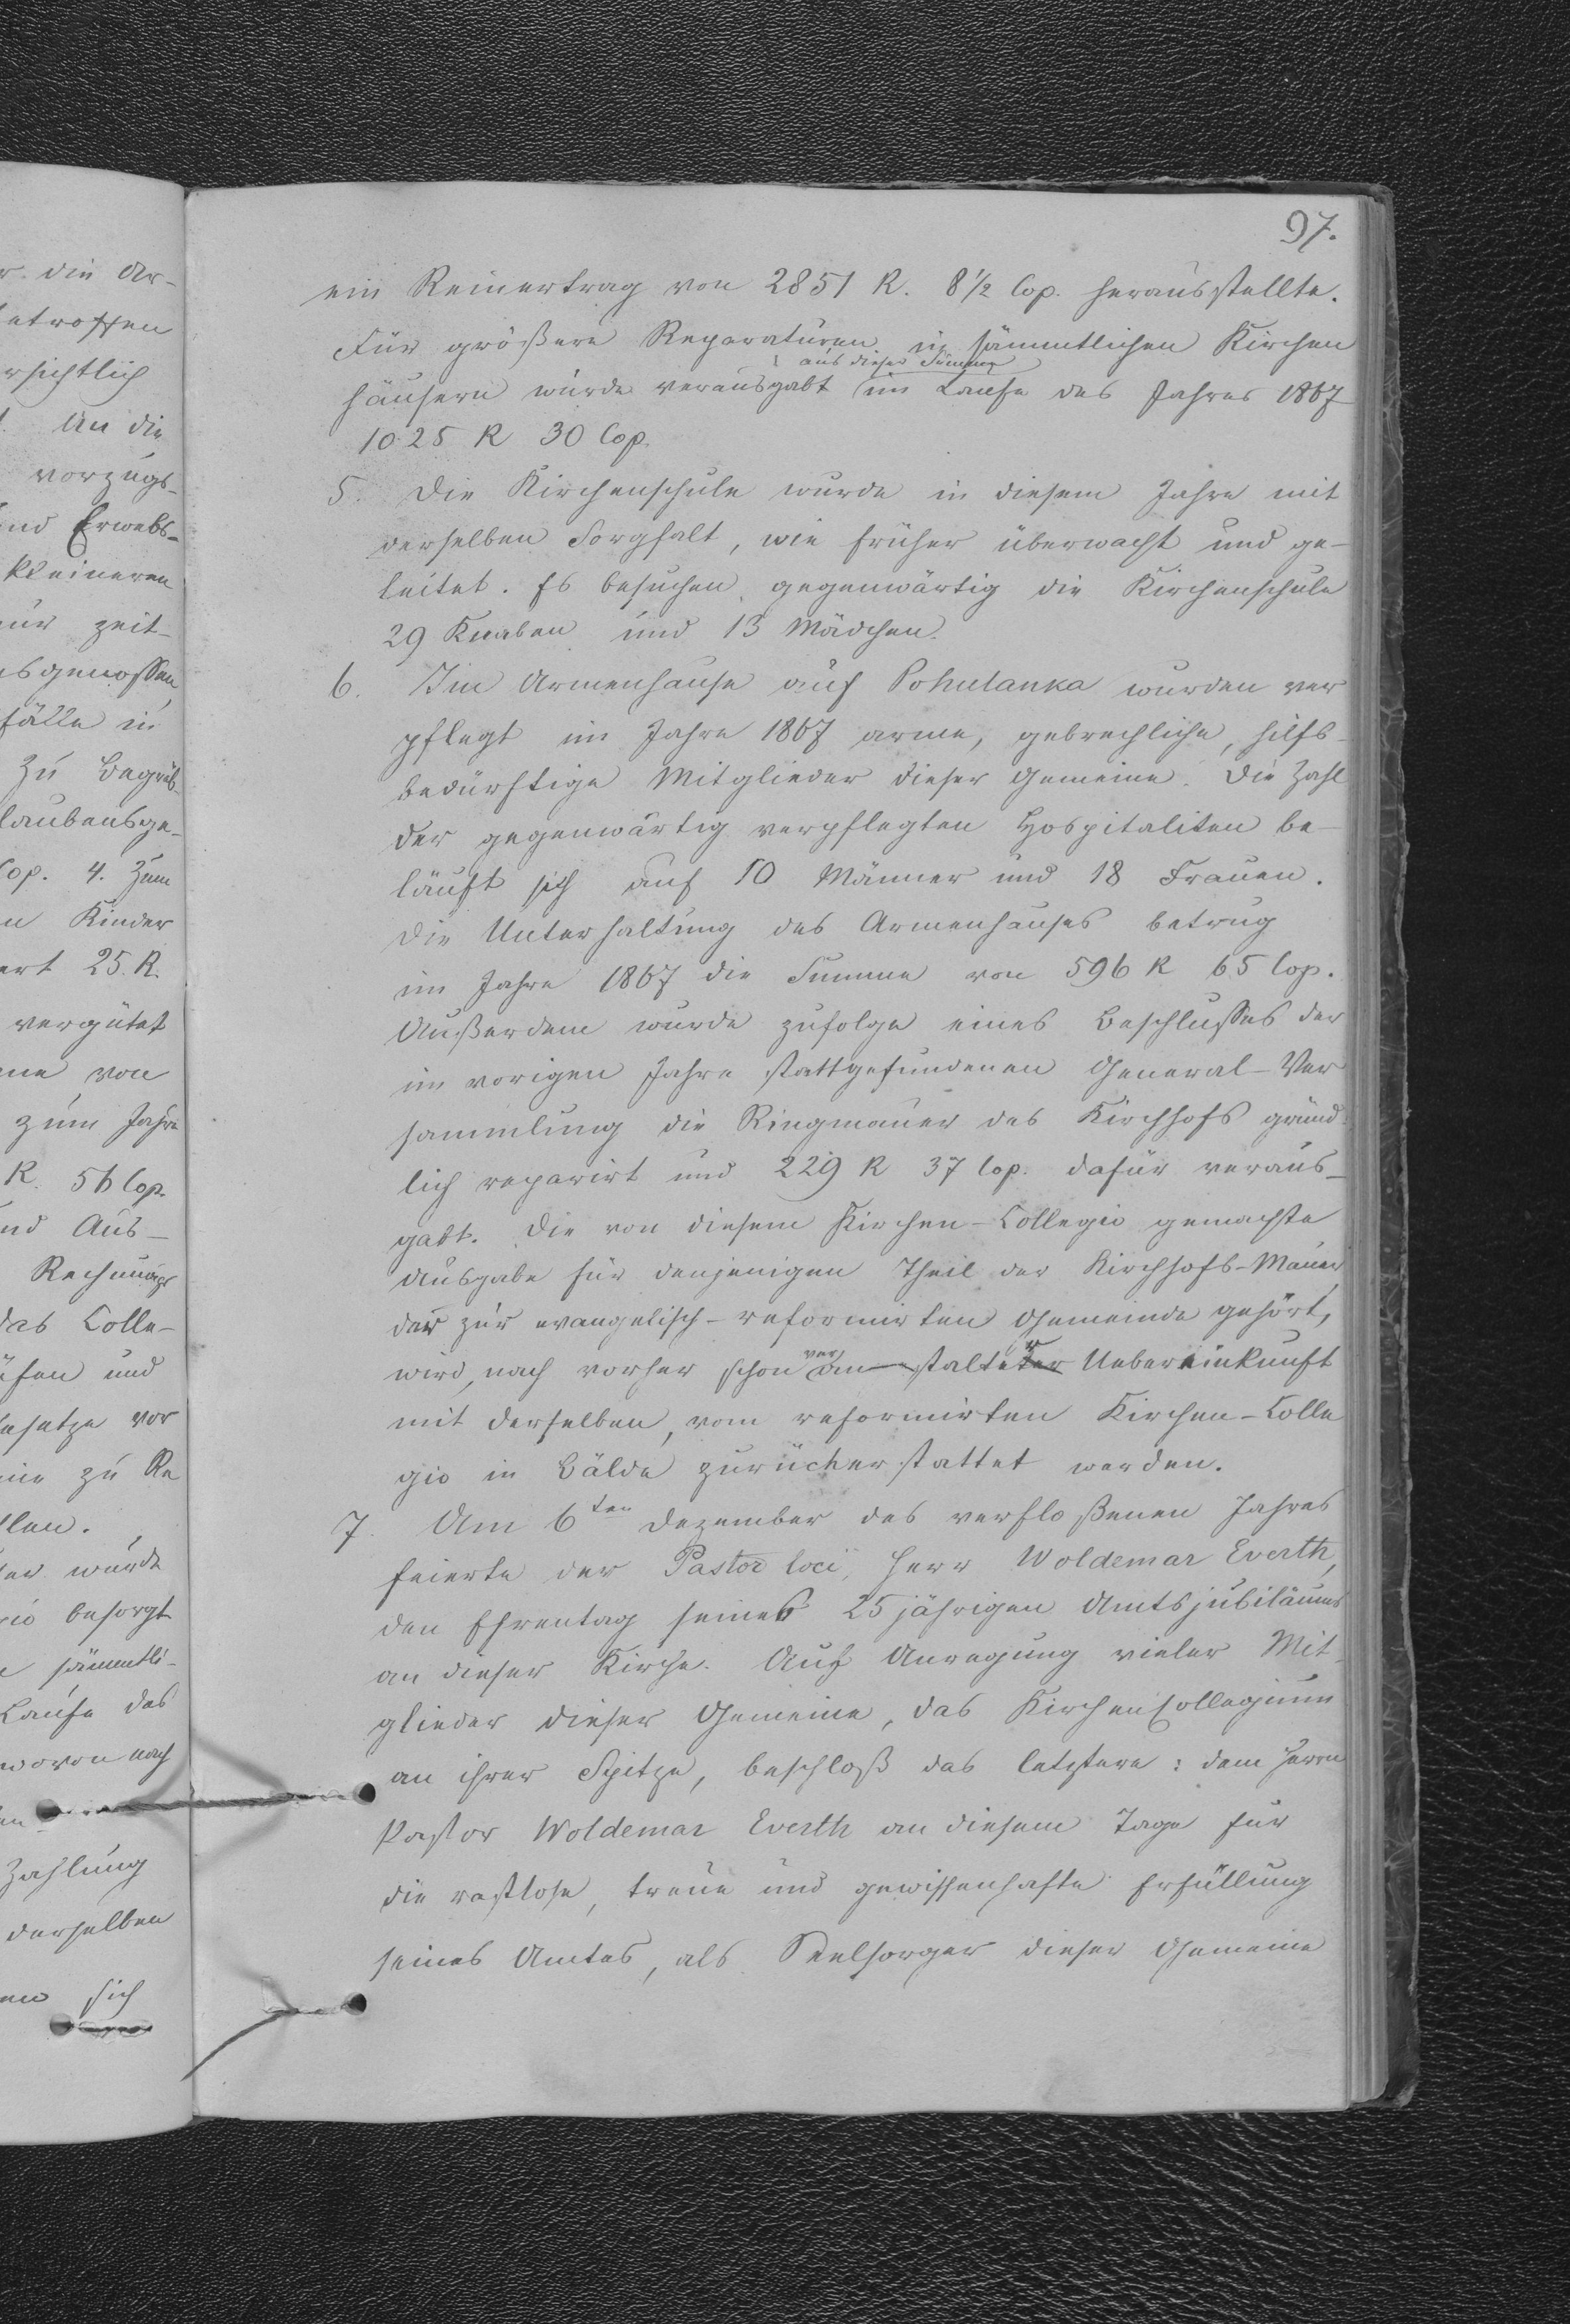 97.
r. die Ar-
etroffen
rsichtlich
An die
vorzugs-
nd Erwebs-
kleineren
ur zeit-
sgenossen
fälle in
zu Begräb-
laubensge-
Cop. 4. Zum
n Kinder
ert 25. R.
vergütet
me von
zum Jahre
R. 56 Cop.
nd Aus-
Rechnungs
das Colle-
üfen und
esetze vor
nie zu Re
llen.
er wurde
gio besorgt
e sämmtli-
Laufe des
wovon nach
en
Zahlung
derselben
en sich
ein Reinertrag von 2851 R. 8 1/2 Cop. herausstellte.
Für größere Reparaturen in sämmtlichen Kirchen
aus dieser Summe
häusern wurde verausgabt im Laufe des Jahres 1867
1025 R 30 Cop.
5. Die Kirchenschule wurde in diesem Jahre mit
derselben Sorgfalt, wie früher überwacht und ge-
leitet. Es besuchen gegenwärtig die Kirchenschule
29 Knaben und 13 Mädchen.
6. Im Armenhause auf Pohulanka wurden ver
pflegt im Jahre 1867 arme, gebrechliche, hilfs-
bedürftige Mitglieder dieser Gemeine. Die Zahl
der gegenwärtig verpflegten Hospitaliten be-
läuft sich auf 10 Männer und 18 Frauen.
Die Unterhaltung des Armenhauses betrug
im Jahre 1867 die Summe von 596 R 65 Cop.
Außerdem wurde zufolge eines Beschlusses der
im vorigen Jahre stattgefundenen General-Ver
sammlung die Ringmauer des Kirchhofs gründ-
lich reparirt und 229 R 37 Cop. dafür veraus-
gabt. Die von diesem Kirchen-Collegio gemachte
Ausgabe für denjenigen Theil der Kirchhofs-Mauer
der zur evangelisch-reformirten Gemeinde gehört,
wird, nach vorher schon veranstalteter Uebereinkunft
mit derselben, vom reformirten Kirchen-Colle
gio in Bälde zurückerstattet werden.
7. Am 6ten Dezember des verfloßenen Jahres
feierte der Pastor loci, Herr Woldemar Everth,
den Ehrentag seines 25jährigen Amtsjubiläums
an dieser Kirche. Auf Anregung vieler Mit-
glieder dieser Gemeine, das Kirchencollegium
an ihrer Spitze, beschloß das letztere: dem Herrn
Pastor Woldemar Everth an diesem Tage für
die rastlose, treue und gewissenhafte Erfüllung
seines Amtes, als Seelsorger dieser Gemeine